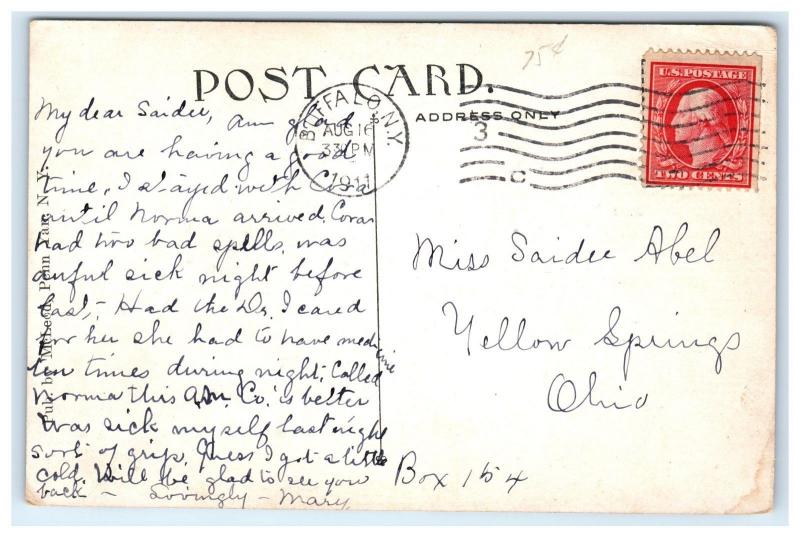 75¢
POST CARD.
ADDRESS ONLY
BUFFALO, N.Y.
AUG 16
330 PM
1911
3
C
U.S. POSTAGE
TWO CENTS
My dear Saidee, Am glad
you are having a good
time, I stayed with Cora
until Norma arrived. Cora
had two bad spells, was
awful sick night before
last,- Had the Dr. I cared
for her she had to have medicine
ten times during night. Called
Norma this A.M. Co. is better
Was sick myself last night
sort of grip, Guess I got a little
cold. Will be glad to see you
back - Lovingly - Mary
Pub. by McLeod, Penn Yan, N. Y.
Miss Saidee Abel
Yellow Springs
Ohio
Box 154